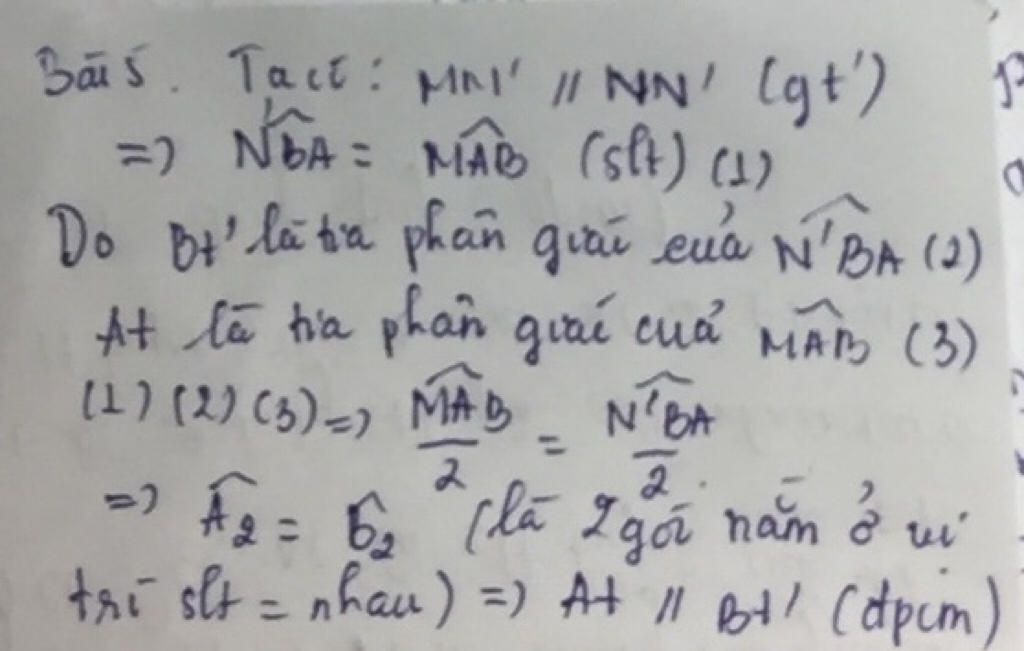 Bài 5. Ta có: MM' // NN' (gt)
=> N'BA = MAB (slt) (1)
Do Bt' là tia phân giác của N'BA (2)
At là tia phân giác của MAB (3)
(1) (2) (3) => MAB/2 = N'BA/2
=> A₂ = B₂ (là 2 góc nằm ở vị
trí slt = nhau) => At // Bt' (đpcm)